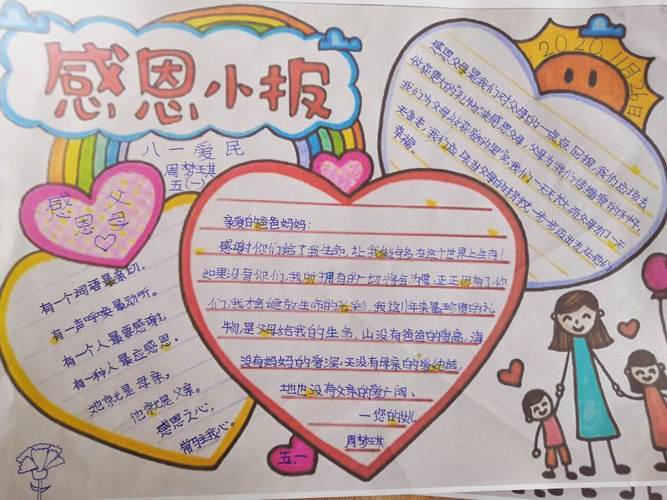 感恩小报
八一爱民
周梦琪
五(一)
2020.11月26日
感恩
父母
感恩父母是我们对父母的一点点回报,我们应该去
天变老,我们应
幸福。
有一个词语最亲切,
有一声呼唤最动听。
有一个人最要感谢,
有一种人最应感恩。
她就是母亲,
他就是父亲。
感恩之心,
常驻我心。
亲爱的爸爸妈妈:
感谢你们给了我生命,让我能够在这个世界上生存!
如果没有你们,我所拥有的一切将会为零,正正因有了你
们,我才会绽放生命的光彩,我这11年来最珍贵的礼
物,是父母给我的生命,山没有爸爸的爱高,海
没有妈妈的爱深,天没有母亲的爱
地也没有父亲的爱广阔。
—您的女儿
周梦琪
五.一